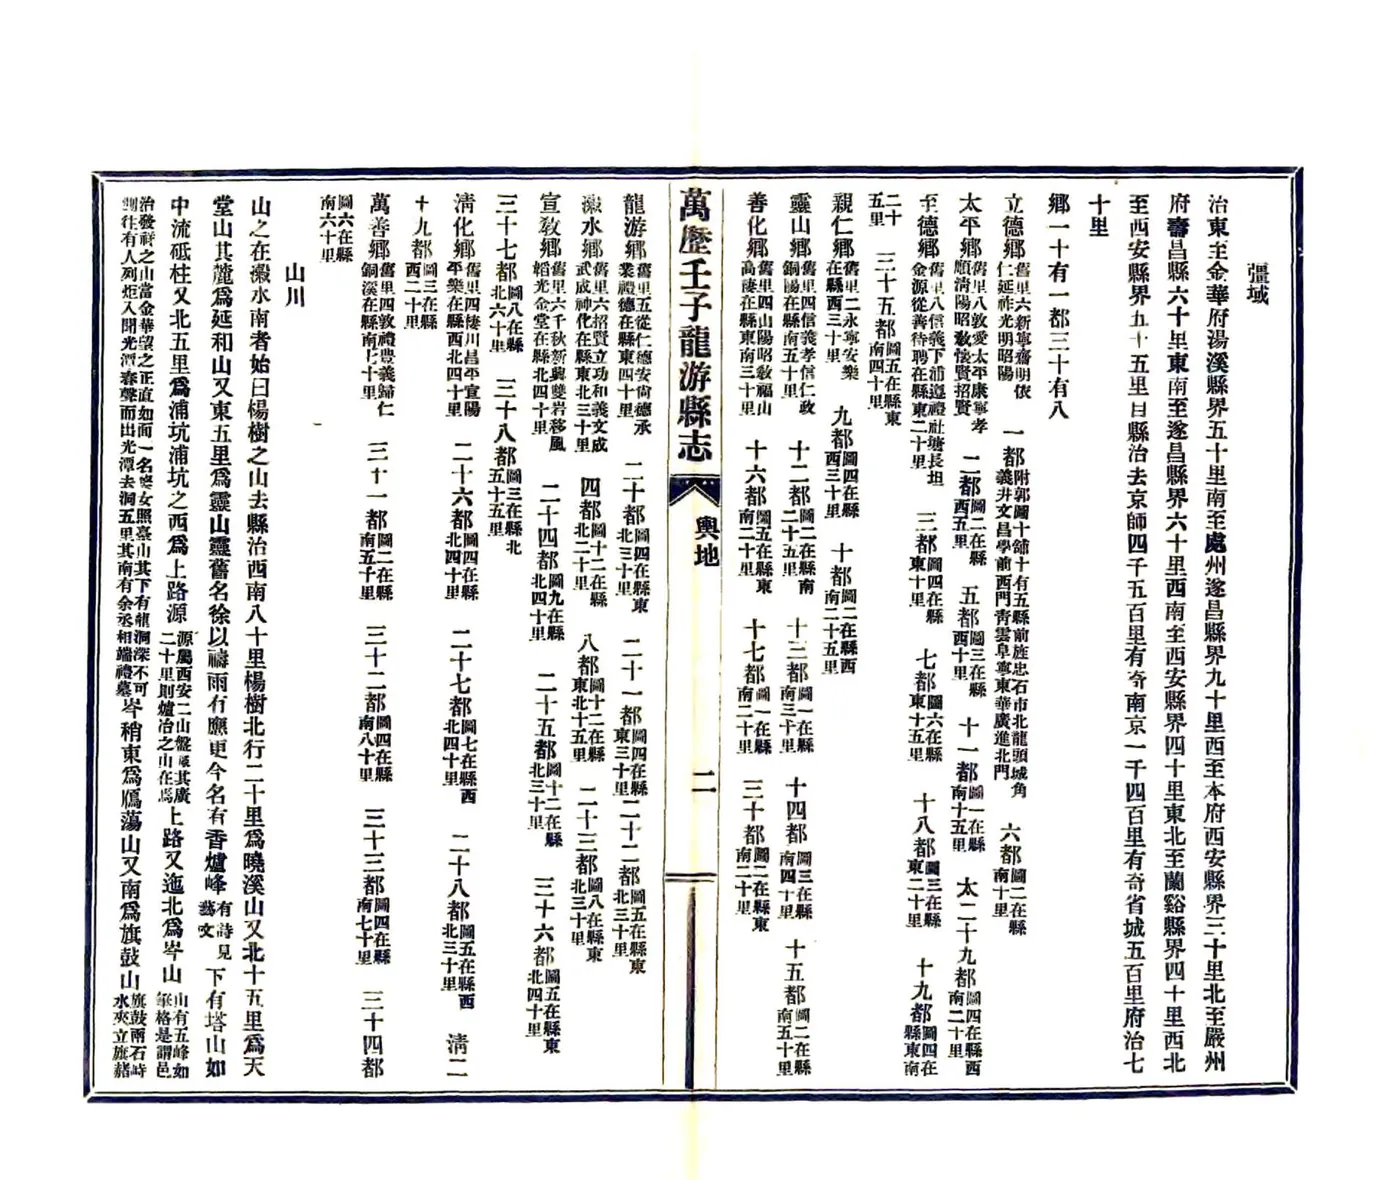 彊域
治東至金華府湯溪縣界五十里南至處州遂昌縣界九十里西至本府西安縣界三十里北至嚴州
府壽昌縣六十里東南至遂昌縣界六十里西南至西安縣界四十里東北至蘭谿縣界四十里西北
至西安縣界九十五里自縣治去京師四千五百里有奇南京一千四百里有奇省城五百里府治七
十里
鄉一十有一都三十有八
立德鄉舊里六新寧齋明依仁延祚光明昭陽 一都附郭圖十舖十有五縣前旌忠石市北龍頭城角義井文昌學前西門靑雲阜寧東華廣進北門 六都圖二在縣南十里
太平鄉舊里八敦愛太平康寧孝順淸陽昭敎懷賢招賢 二都圖二在縣西五里 五都圖三在縣西十里 十一都圖一在縣南十五里 太二十九都圖四在縣西南二十里
至德鄉舊里八信義下浦遵禮社塘長坦金源從善待聘在縣東二十里 三都圖四在縣東十里 七都圖六在縣東十五里 十八都圖三在縣東二十里 十九都圖四在縣東南
二十五里 三十五都圖五在縣東南四十里
親仁鄉舊里二永寧安樂在縣西三十里 九都圖四在縣西三十里 十都圖二在縣西南二十五里
靈山鄉舊里四信義孝信仁政銅陽在縣南五十里 十二都圖二在縣南二十五里 十三都圖一在縣南三十里 十四都圖三在縣南四十里 十五都圖二在縣南五十里
善化鄉舊里四山陽昭敎福山高陵在縣東南三十里 十六都圖五在縣東南二十里 十七都圖一在縣南二十里 三十都圖二在縣東南二十里
萬歷壬子龍游縣志
輿地
二
龍游鄉舊里五從仁德安尙德承業禮德在縣東四十里 二十都圖四在縣東北三十里 二十一都圖四在縣東三十里 二十二都圖五在縣東北三十里
瀫水鄉舊里六招賢立功和義文成武成神化在縣東北三十里 四都圖十二在縣北二十里 八都圖十二在縣東北十五里 二十三都圖八在縣東北三十里
宣敎鄉舊里六千秋新興雙岩移風韜光金堂在縣北四十里 二十四都圖九在縣北四十里 二十五都圖十二在縣北三十里 三十六都圖五在縣東北四十里
三十七都圖八在縣北六十里 三十八都圖三在縣北五十五里
淸化鄉舊里四棲川昌平宣陽平樂在縣西北四十里 二十六都圖四在縣北四十里 二十七都圖七在縣西北四十里 二十八都圖五在縣西北三十里 淸二
十九都圖三在縣西二十里
萬善鄉舊里四敦禮豊義歸仁銅溪在縣南七十里 三十一都圖二在縣南五十里 三十二都圖四在縣南八十里 三十三都圖四在縣南七十里 三十四都
圖六在縣南六十里
山川
山之在瀫水南者始曰楊樹之山去縣治西南八十里楊樹北行二十里爲曉溪山又北十五里爲天
堂山其麓爲延和山又東五里爲靈山靈舊名徐以禱雨有應更今名有香爐峰有詩見藝文下有塔山如
中流砥柱又北五里爲浦坑浦坑之西爲上路源源屬西安二山盤其廣二十里則爐冶之山在焉上路又迤北爲岑山山有五峰如筆格是謂邑
治發祥之山當金華望之正直如面一名婺女照臺山其下有龍洞深不可測往有人列炬入聞光潭舂聲而出光潭去洞五里其南有余丞相端禮墓岑稍東爲鴈蕩山又南爲旗鼓山旗鼓兩石峙水夾立旗赭